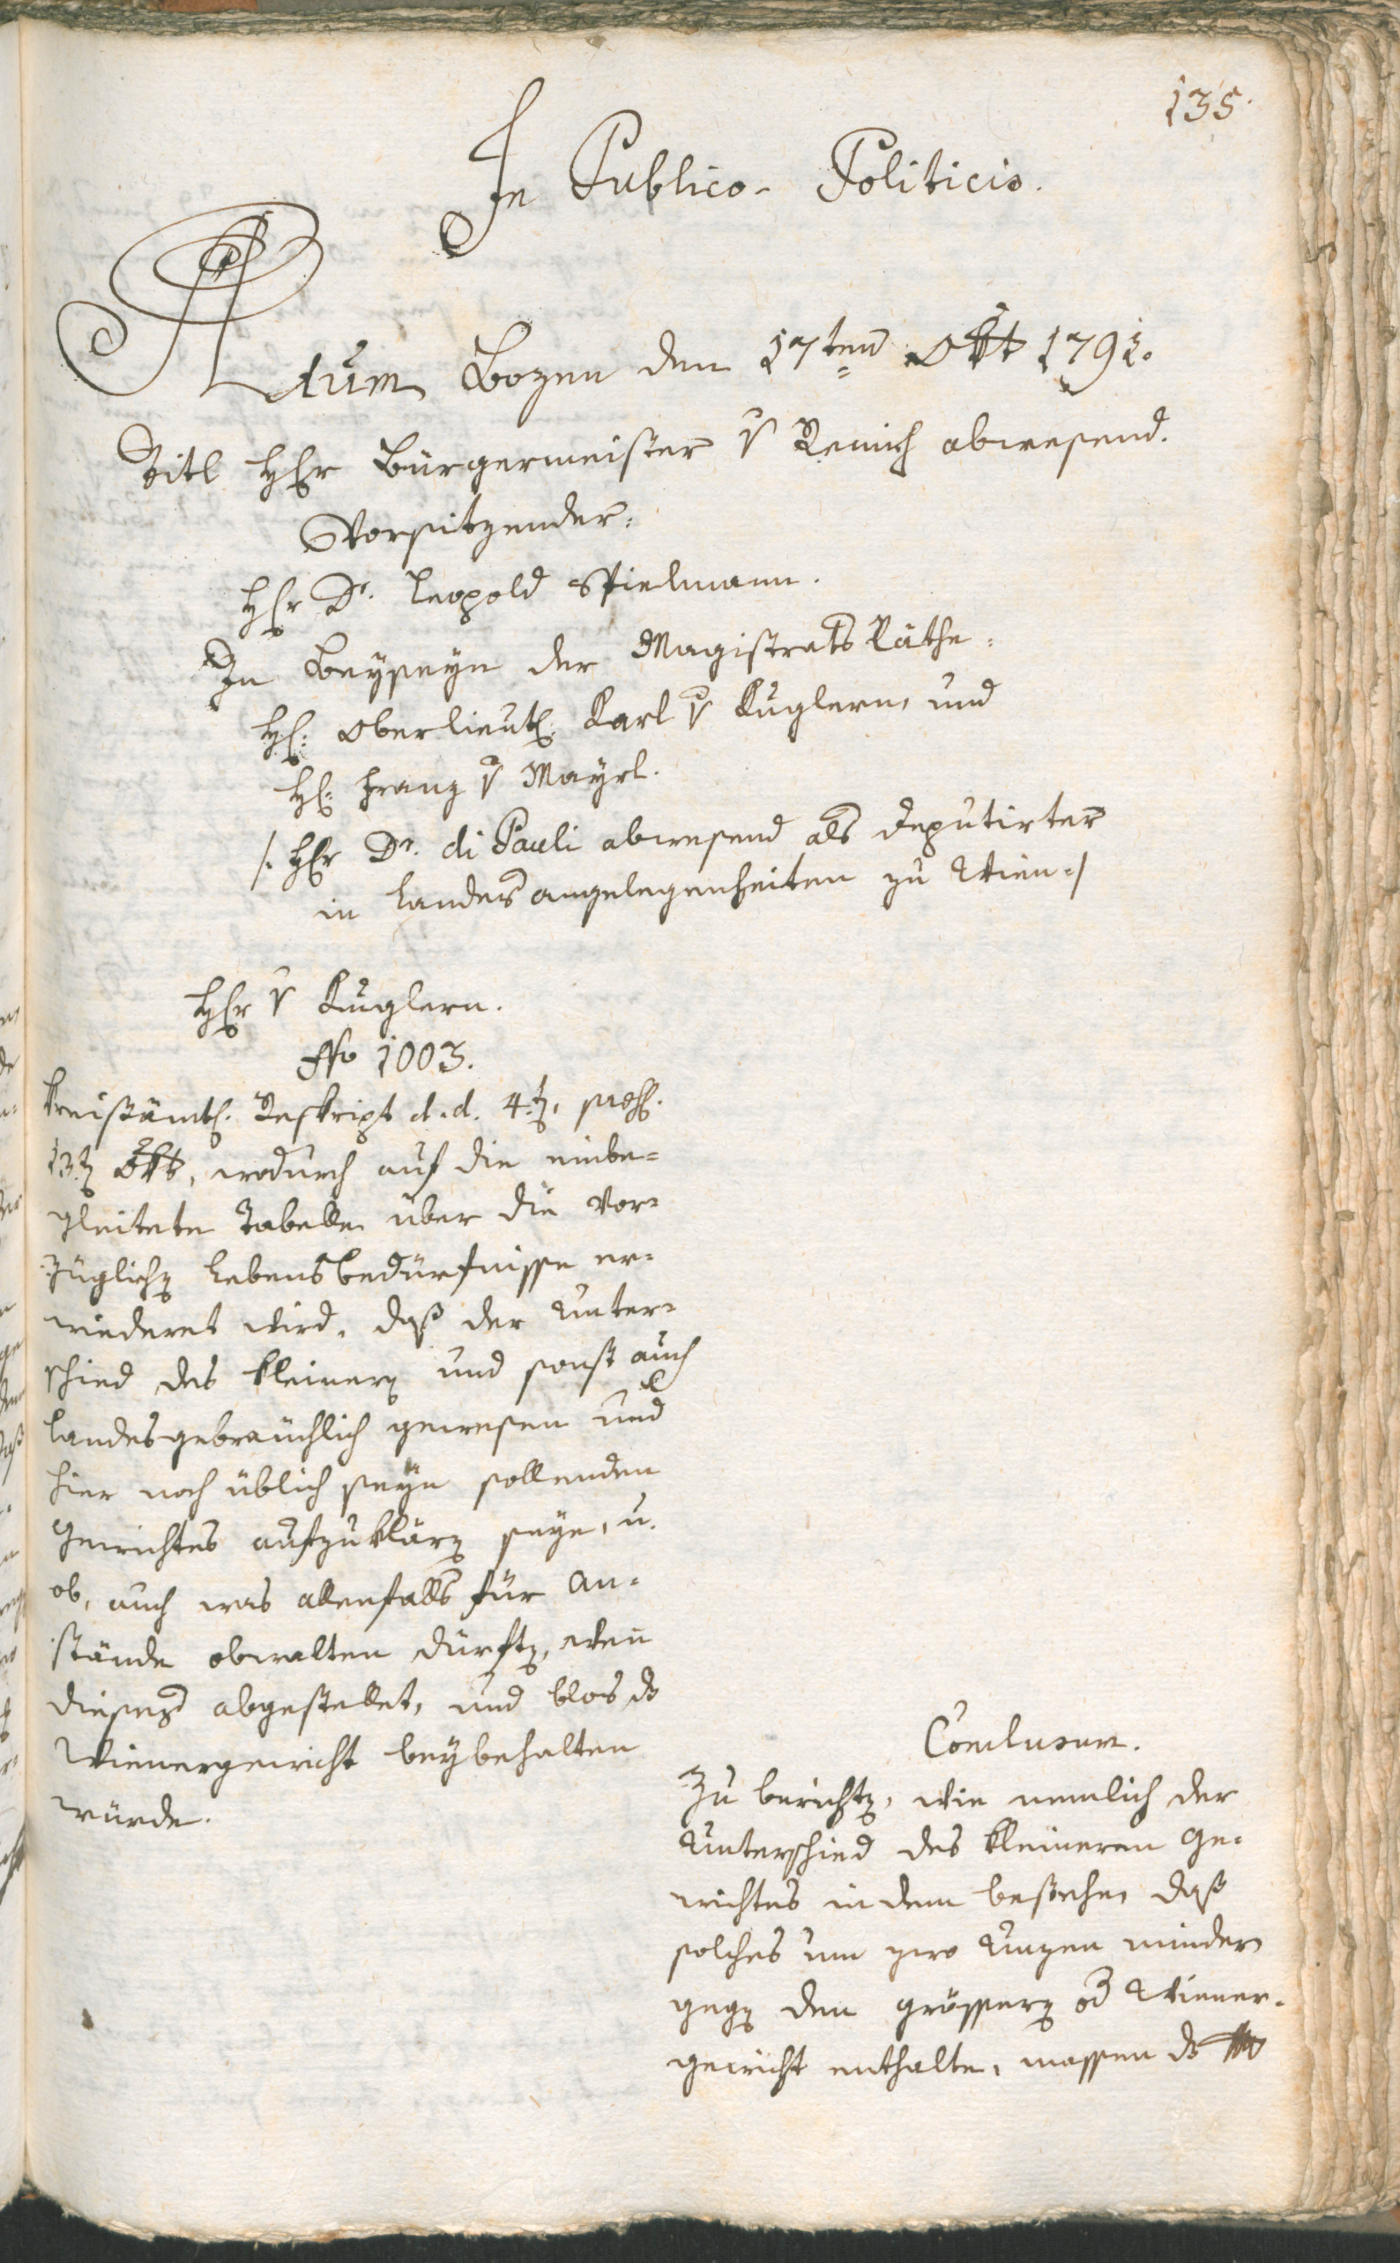 135.
In Publico-Politicis.
Actum Bozen den 17ten Okt 1791.
Titl HEr Bürgermeister v Remich abwesend.
Vorsitzender:
HEr Dr. Leopold Spielmann.
In Beyseyn der Magistrats Räthe:
H: Oberlieut: Karl v Kuglern, und
H: Franz v Mayrl.
/: HEr Dr. di Pauli abwesend als Deputirter
in Landesangelegenheiten zu Wien :/
HEr v Kuglern.
Nro 1003.
Kreisämtl. Reskript d. d. 4t, präs.
13t Okt, wodurch auf die einbe=
gleitete Tabelle über die vor=
züglichen Lebensbedürfnisse er=
wiederet wird, daß der Unter=
schied des kleinern und sonst auch
landesgebräuchlich gewesen und
hier noch üblich seyn sollenden
Gewichtes aufzuklären seye, u.
ob, auch was allenfalls für An=
stände obwalten dürften, wenn
dieses abgestellet, und blos das
Wienergewicht beybehalten
würde.
Conclusum.
Zu berichten, wie nemlich der
Unterschied des kleineren Ge=
wichtes in dem bestehe, daß
solches um zwo Unzen minder
gegen den grössern od Wiener=
gewicht enthalte, massen das